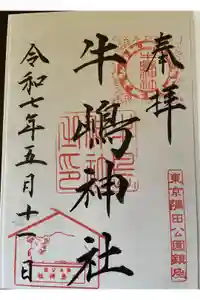 奉拝
牛嶋神社
令和七年五月十一日
東京隅田公園鎮座